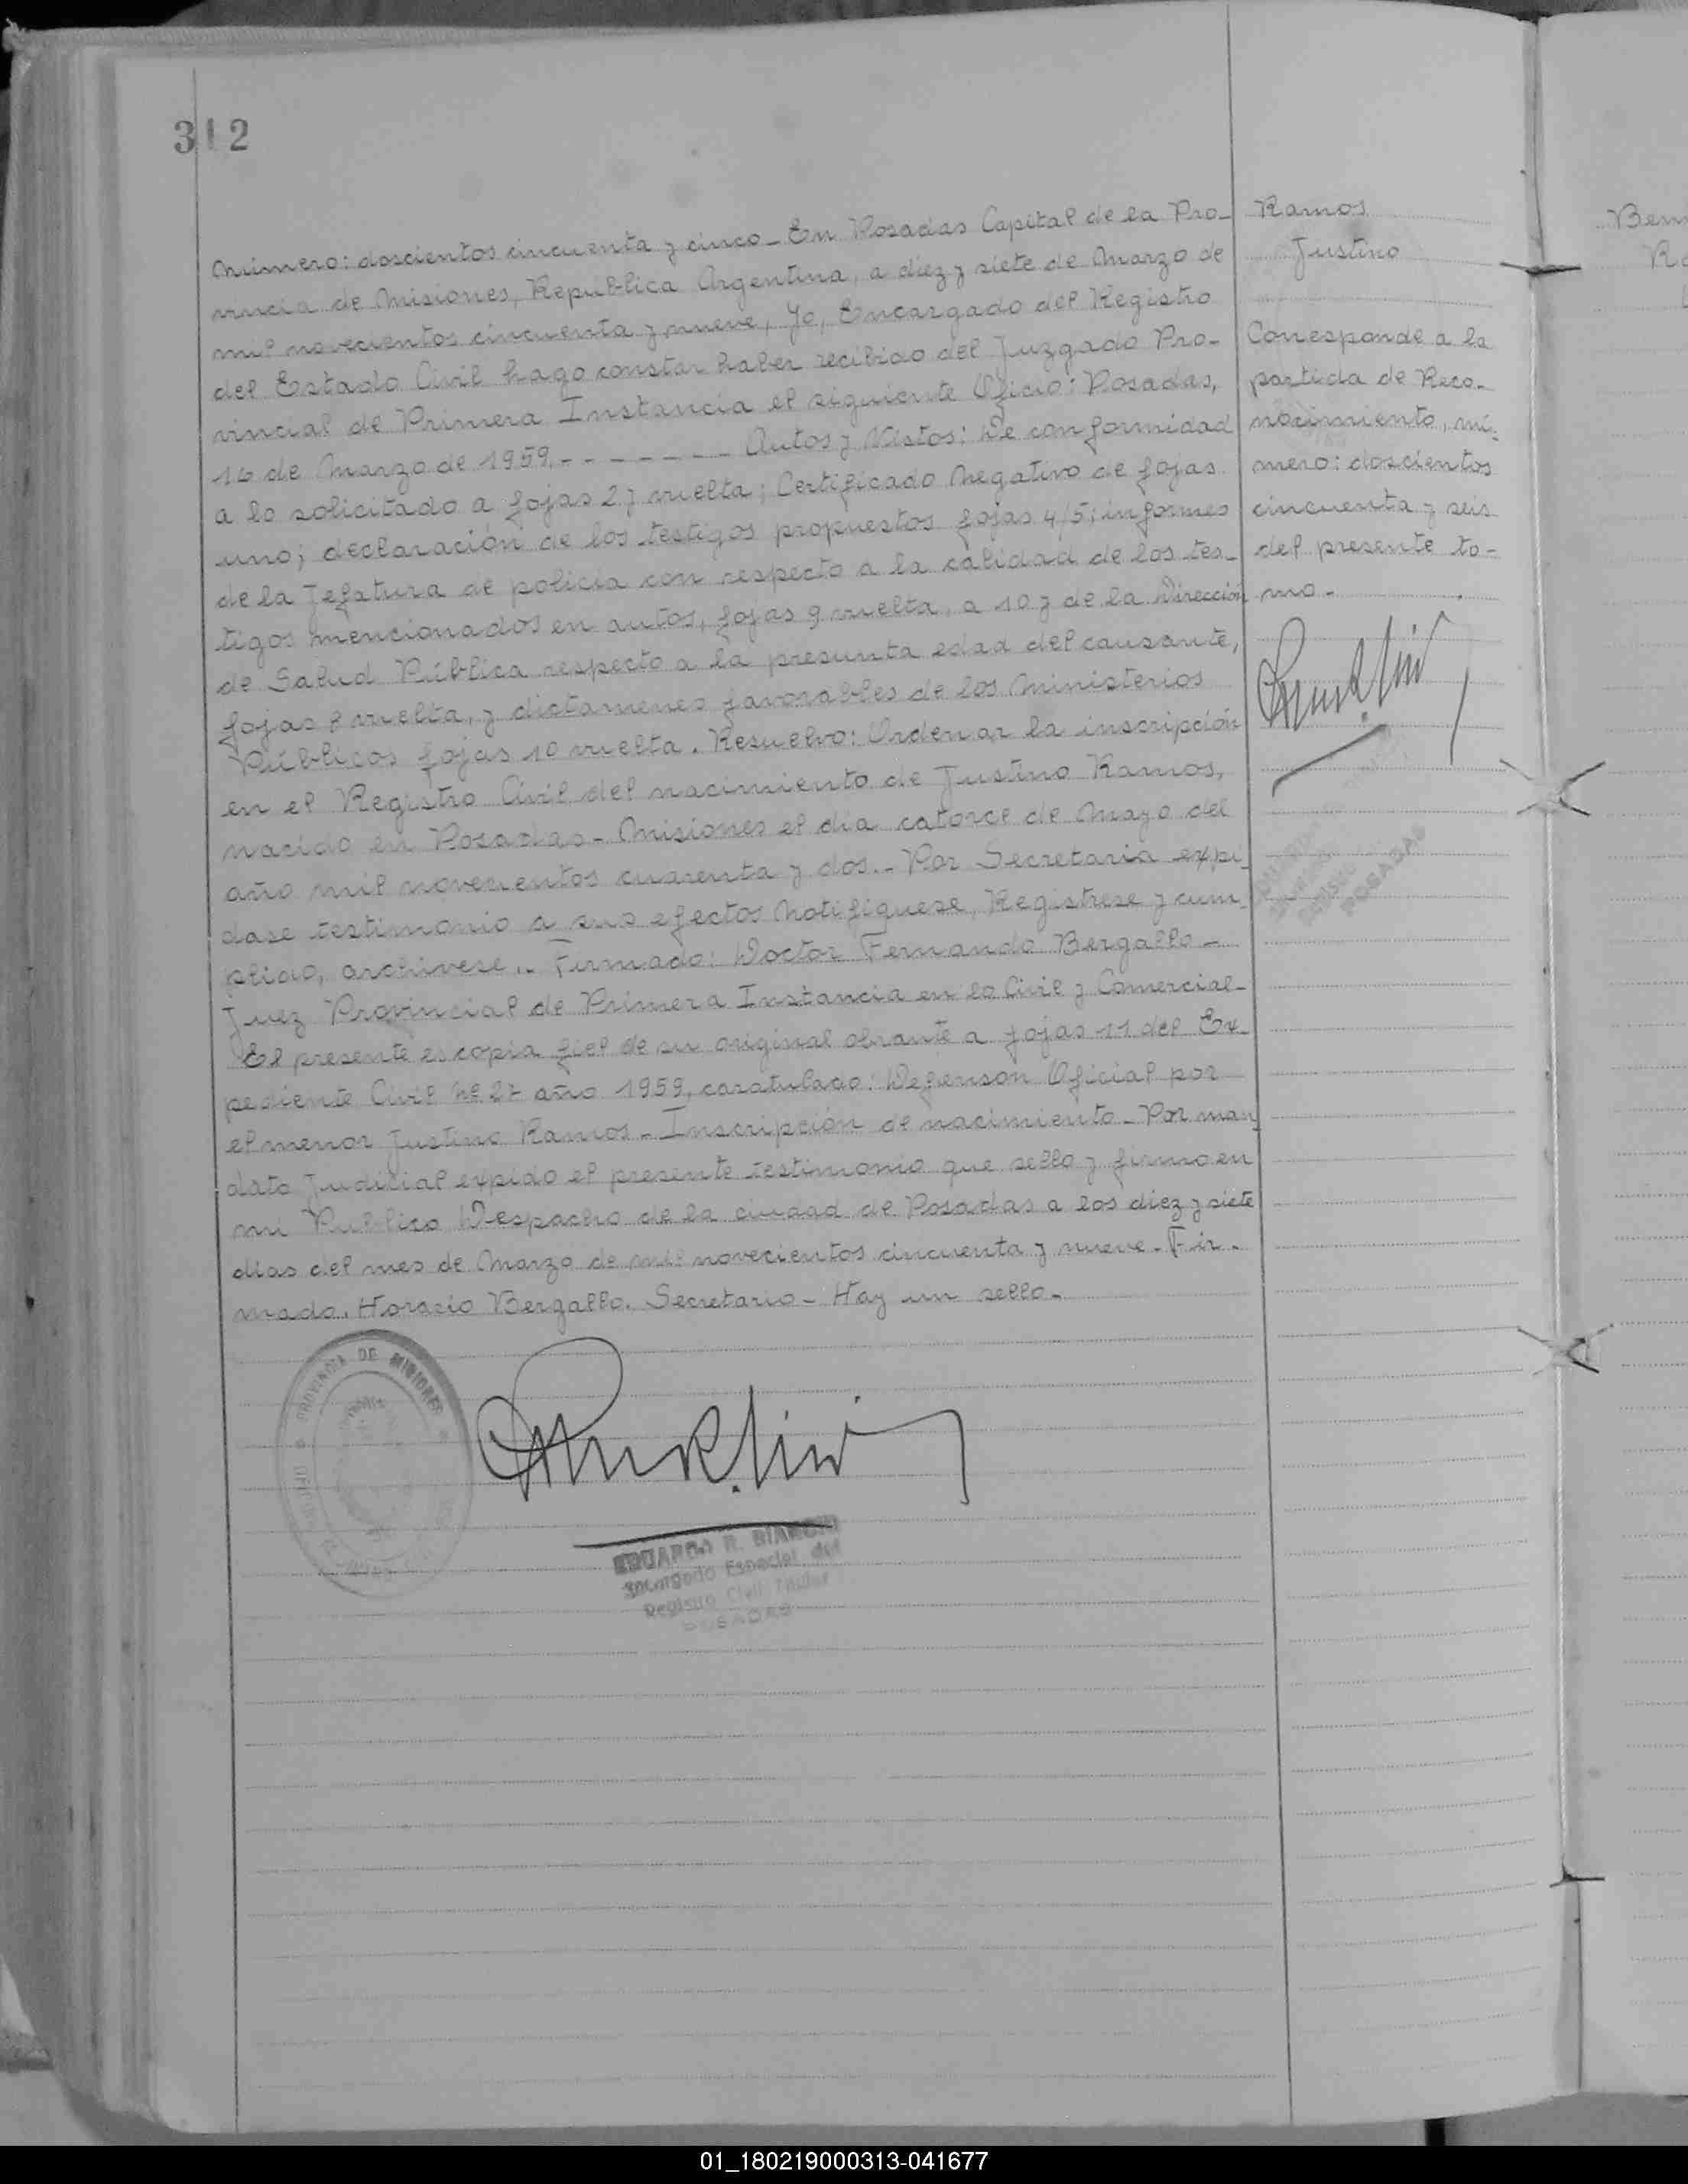 312
Número: doscientos cincuenta y cinco - En Posadas Capital de la Pro-
vincia de Misiones, Republica Argentina, a diez y siete de Marzo de
mil novecientos cincuenta y nueve, Yo, Encargado del Registro
del Estado Civil hago constar haber recibido del Juzgado Pro-
vincial de Primera Instancia el siguiente Oficio: Posadas,
16 de Marzo de 1959. - - - - - - - Autos y Vistos: De conformidad
a lo solicitado a fojas 2 y vuelta; Certificado Negativo de fojas
uno; declaración de los testigos propuestos fojas 4/5; informes
de la Jefatura de policía con respecto a la calidad de los tes-
tigos mencionados en autos, fojas 9 vuelta, a 10 y de la Dirección
de Salud Pública respecto a la presunta edad del causante,
fojas 8 vuelta, y dictamenes favorables de los Ministerios
Públicos fojas 10 vuelta. Resuelvo: Ordenar la inscripción
en el Registro Civil del nacimiento de Justino Ramos,
nacido en Posadas - Misiones el día catorce de Mayo del
año mil novecientos cuarenta y dos. - Por Secretaria expi-
dase testimonio a sus efectos Notifiquese, Registrese y cum-
plido, archivese.. Firmado: Doctor Fernando Bergallo -
Juez Provincial de Primera Instancia en lo Civil y Comercial -
El presente es copia fiel de su original obrante a fojas 11 del Ex-
pediente Civil Nº 27 año 1959, caratulado: Defensor Oficial por
el menor Justino Ramos - Inscripción de nacimiento - Por man
dato Judicial expido el presente testimonio que sello y firmo en
mi Publico Despacho de la ciudad de Posadas a los diez y siete
dias del mes de Marzo de mil novecientos cincuenta y nueve - Fir-
mado. Horacio Bergallo. Secretario - Hay un sello -
PROVINCIA DE MISIONES
EDUARDO R. BIANCHI
Encargado Especial del
Registro Civil Titular
POSADAS
Ramos
Justino
Corresponde a la
partida de Reco-
nocimiento, nú-
mero: doscientos
cincuenta y seis
del presente to-
mo -
POSADAS
Ben
01_180219000313-041677